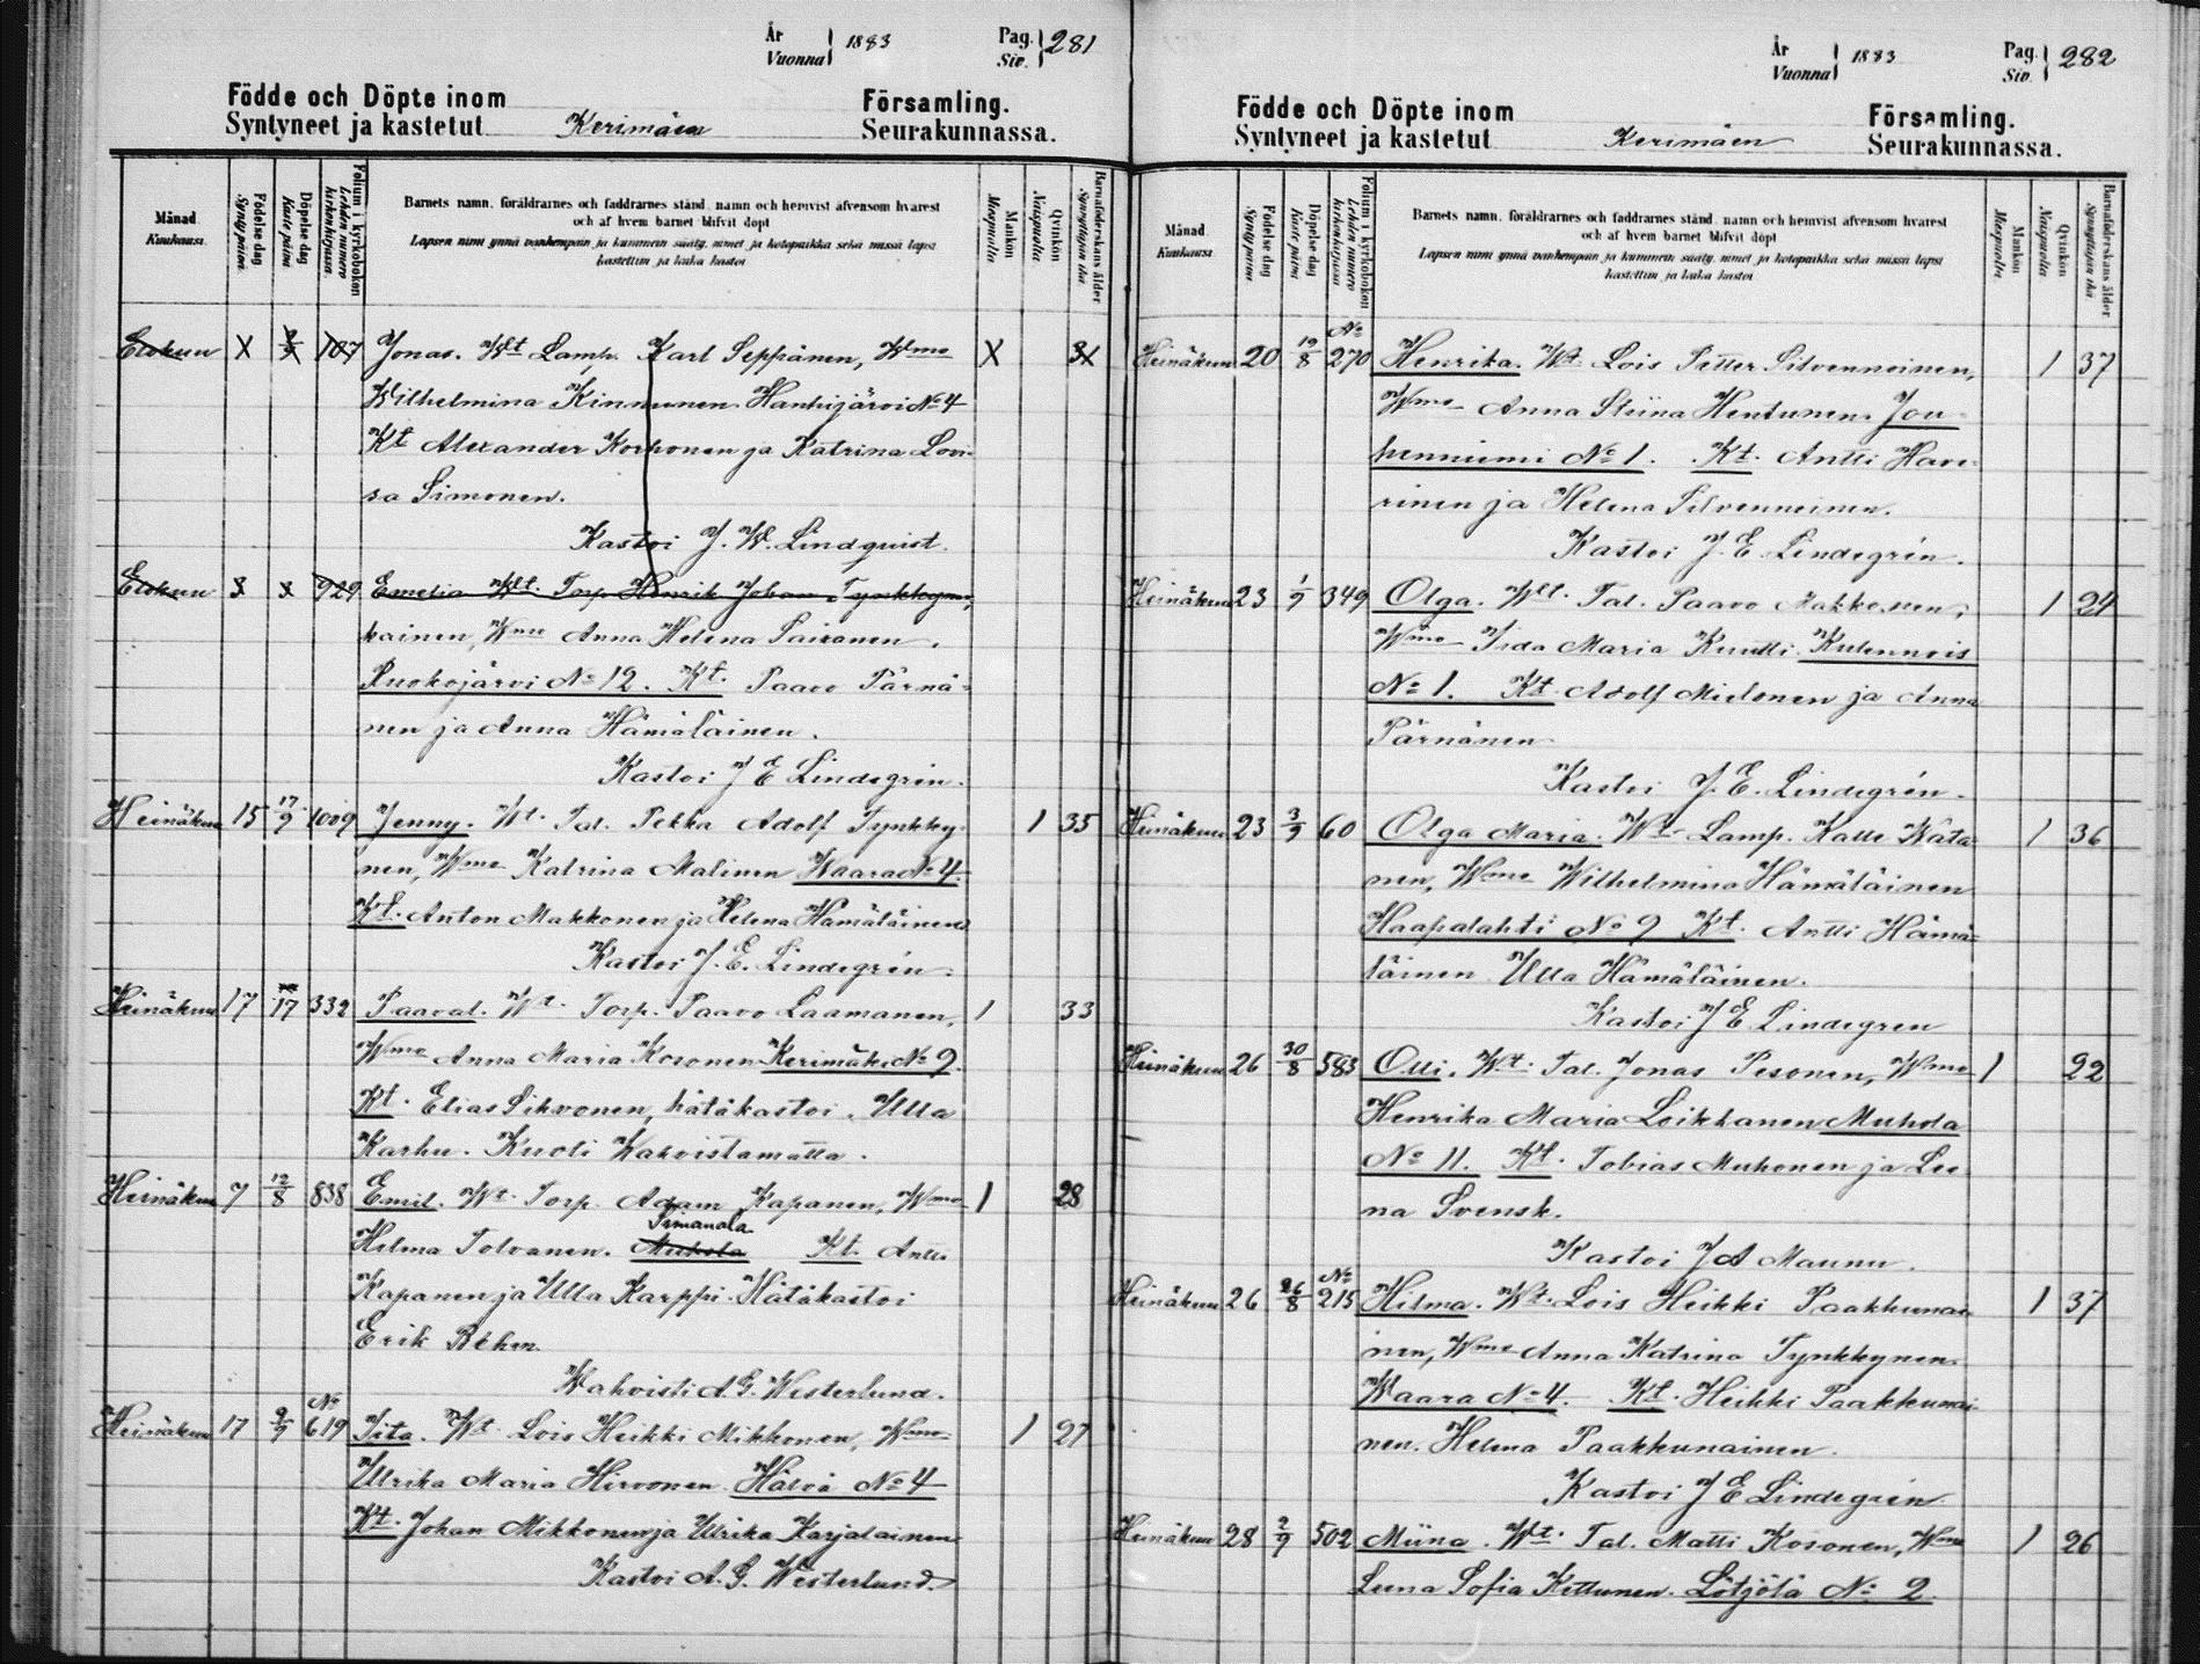 År
Vuonna 1883
Pag.
Siv. 281
Födde och Döpte inom Församling.
Syntyneet ja kastetut Kerimäen Seurakunnassa.
Månad
Kuukausi
Födelse dag
Synty päivä
Döpelse dag
Kaste päivä
Folium i kyrkoboken
Lehden numero kirkonkirjassa
Barnets namn, föräldrarnes och faddrarnes stånd, namn och hemvist äfvensom hvarest
och af hvem barnet blifvit döpt
Lapsen nimi ynnä vanhempain ja kummein sääty, nimet ja kotopaikka sekä missä lapsi
kastettiin ja kuka kastoi
Mankön
Miespuolia
Qvinkön
Naispuolia
Barnaföderskans ålder
Synnyttäjän ikä
Elokuu X 107 Jonas. Wt Lamp. Karl Seppänen, Wmo X
Wilhelmina Kinnunen. Hanhijärvi No 4
Kt Alexander Korhonen ja Katrina Lovi-
sa Simonen.
Kastoi J. W. Lindquist.
Elokuu 929 Emelia Wt. Torp Henrik Johan Tynkkyn,
kainen, Wmo Anna Helena Paivanen.
Ruokojärvi No 12. Kt. Paavo Pärnä-
nen ja Anna Hämäläinen.
Kastoi J E Lindegrén.
Heinäkuu 15 17/9 1009 Jenny. Wt. Tal. Pekka Adolf Tynkky- 1 35
nen, Wmo Katrina Malinen Waara No 4.
Kt. Anton Makkonen ja Helena Hämäläinen
Kastoi J. E. Lindegrén.
Heinäkuu 17 17 332 Paaval. Wt. Torp. Paavo Laamanen, 1 33
Wmo Anna Maria Kosonen Kerimäki No 9.
Kt. Elias Sihvonen, hätäkastoi. Ulla
Karhu. Kuoli Wahvistamatta.
Heinäkuu 7 12/8 838 Emil. Wt. Torp. Adam Kapanen, Wmo 1 28
Hilma Tolvanen. Muhola Simanala Kt. Antti
Kapanen ja Ulla Karppi. Hätäkastoi
Erik Böhm.
Wahvisti A. G. Westerlund.
Heinäkuu 17 9/9 No 619 Iita. Wt. Lois Heikki Mikkonen, Wmo 1 27
Ulrika Maria Hirvonen. Hälvä No 4
Kt. Johan Mikkonen ja Ulrika Karjalainen.
Kastoi A. G. Westerlund.
År
Vuonna 1883
Pag.
Siv. 282
Födde och Döpte inom Församling.
Syntyneet ja kastetut Kerimäen Seurakunnassa.
Månad
Kuukausi
Födelse dag
Synty päivä
Döpelse dag
Kaste päivä
Folium i kyrkoboken
Lehden numero kirkonkirjassa
Barnets namn, föräldrarnes och faddrarnes stånd, namn och hemvist äfvensom hvarest
och af hvem barnet blifvit döpt
Lapsen nimi ynnä vanhempain ja kummein sääty, nimet ja kotopaikka sekä missä lapsi
kastettiin ja kuka kastoi
Mankön
Miespuolia
Qvinkön
Naispuolia
Barnaföderskans ålder
Synnyttäjän ikä
Heinäkuu 20 19/8 No 270 Henrika. Wt. Lois Petter Silvennoinen, 1 37
Wmo Anna Stiina Hentunen. Jou-
henniemi No 1. Kt. Antti Have-
rinen ja Helena Silvennoinen.
Kastoi J. E. Lindegrén.
Heinäkuu 23 1/9 349 Olga. Wt. Tal. Paavo Makkonen, 1 24
Wmo Iida Maria Kuutti. Kulennois
No 1. Kt. Adolf Mielonen ja Anna
Pärnänen.
Kastoi J. E. Lindegrén.
Heinäkuu 23 3/9 60 Olga Maria. Wt. Lamp. Kalle Wäta- 1 36
nen, Wmo Wilhelmina Hämäläinen
Haapalahti No 9 Kt. Antti Hämä-
läinen Ulla Hämäläinen.
Kastoi J E Lindegren
Heinäkuu 26 30/8 583 Olli. Wt. Tal. Jonas Pesonen, Wmo 1 22
Henrika Maria Loikkanen Muhola
No 11. Kt. Tobias Muhonen ja Lee-
na Svensk.
Kastoi J A Maunu.
Heinäkuu 26 26/8 No 215 Hilma. Wt. Lois Heikki Paakkunai- 1 37
nen, Wmo Anna Katrina Tynkkynen.
Waara No 4. Kt. Heikki Paakkunai-
nen. Helena Paakkunainen.
Kastoi J E Lindegrén
Heinäkuu 28 2/9 502 Miina. Wt. Tal. Matti Kosonen, Wmo 1 26
Leena Sofia Kettunen. Lötjölä No 2.